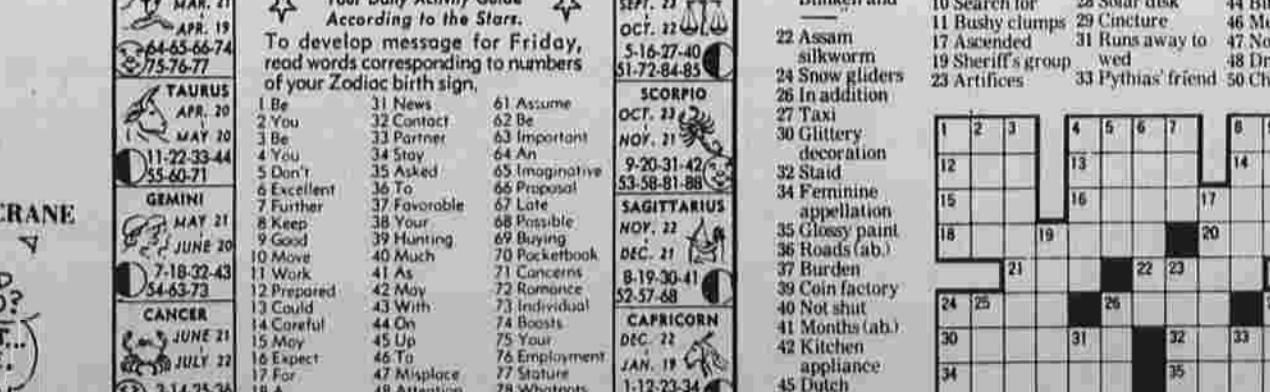 CRANE
MAR. 21
APR. 19
64-65-66-74
75-76-77
TAURUS
APR. 20
MAY 20
11-22-33-44
55-60-71
GEMINI
MAY 21
JUNE 20
7-18-32-43
54-63-73
CANCER
JUNE 21
JULY 22
Your Daily Activity Guide
According to the Stars.
To develop message for Friday,
read words corresponding to numbers
of your Zodiac birth sign.
1 Be
2 You
3 Be
4 You
5 Don't
6 Excellent
7 Further
8 Keep
9 Good
10 Move
11 Work
12 Prepared
13 Could
14 Careful
15 May
16 Expect
17 For
31 News
32 Contact
33 Partner
34 Stay
35 Asked
36 To
37 Favorable
38 Your
39 Hunting
40 Much
41 As
42 May
43 With
44 On
45 Up
46 To
47 Misplace
48 Attention
61 Assume
62 Be
63 Important
64 An
65 Imaginative
66 Proposal
67 Late
68 Possible
69 Buying
70 Pocketbook
71 Concerns
72 Romance
73 Individual
74 Boosts
75 Your
76 Employment
77 Stature
SEPT. 23
OCT. 22
5-16-27-40
51-72-84-85
SCORPIO
OCT. 23
NOV. 21
9-20-31-42
53-58-81-88
SAGITTARIUS
NOV. 22
DEC. 21
8-19-30-41
52-57-68
CAPRICORN
DEC. 22
JAN. 19
1-12-23-34
22 Assam
silkworm
24 Snow gliders
26 In addition
27 Taxi
30 Glittery
decoration
32 Staid
34 Feminine
appellation
35 Glossy paint
36 Roads (ab.)
37 Burden
39 Coin factory
40 Not shut
41 Months (ab.)
42 Kitchen
appliance
45 Dutch
10 Search for
11 Bushy clumps
17 Ascended
19 Sheriff's group
23 Artifices
28 Solar disk
29 Cincture
31 Runs away to
wed
33 Pythias' friend
44
46
47
48
50
1 2 3 4 5 6 7 8
12 13 14
15 16 17
18 19 20
21 22 23
24 25 26
30 31 32 33
34 35